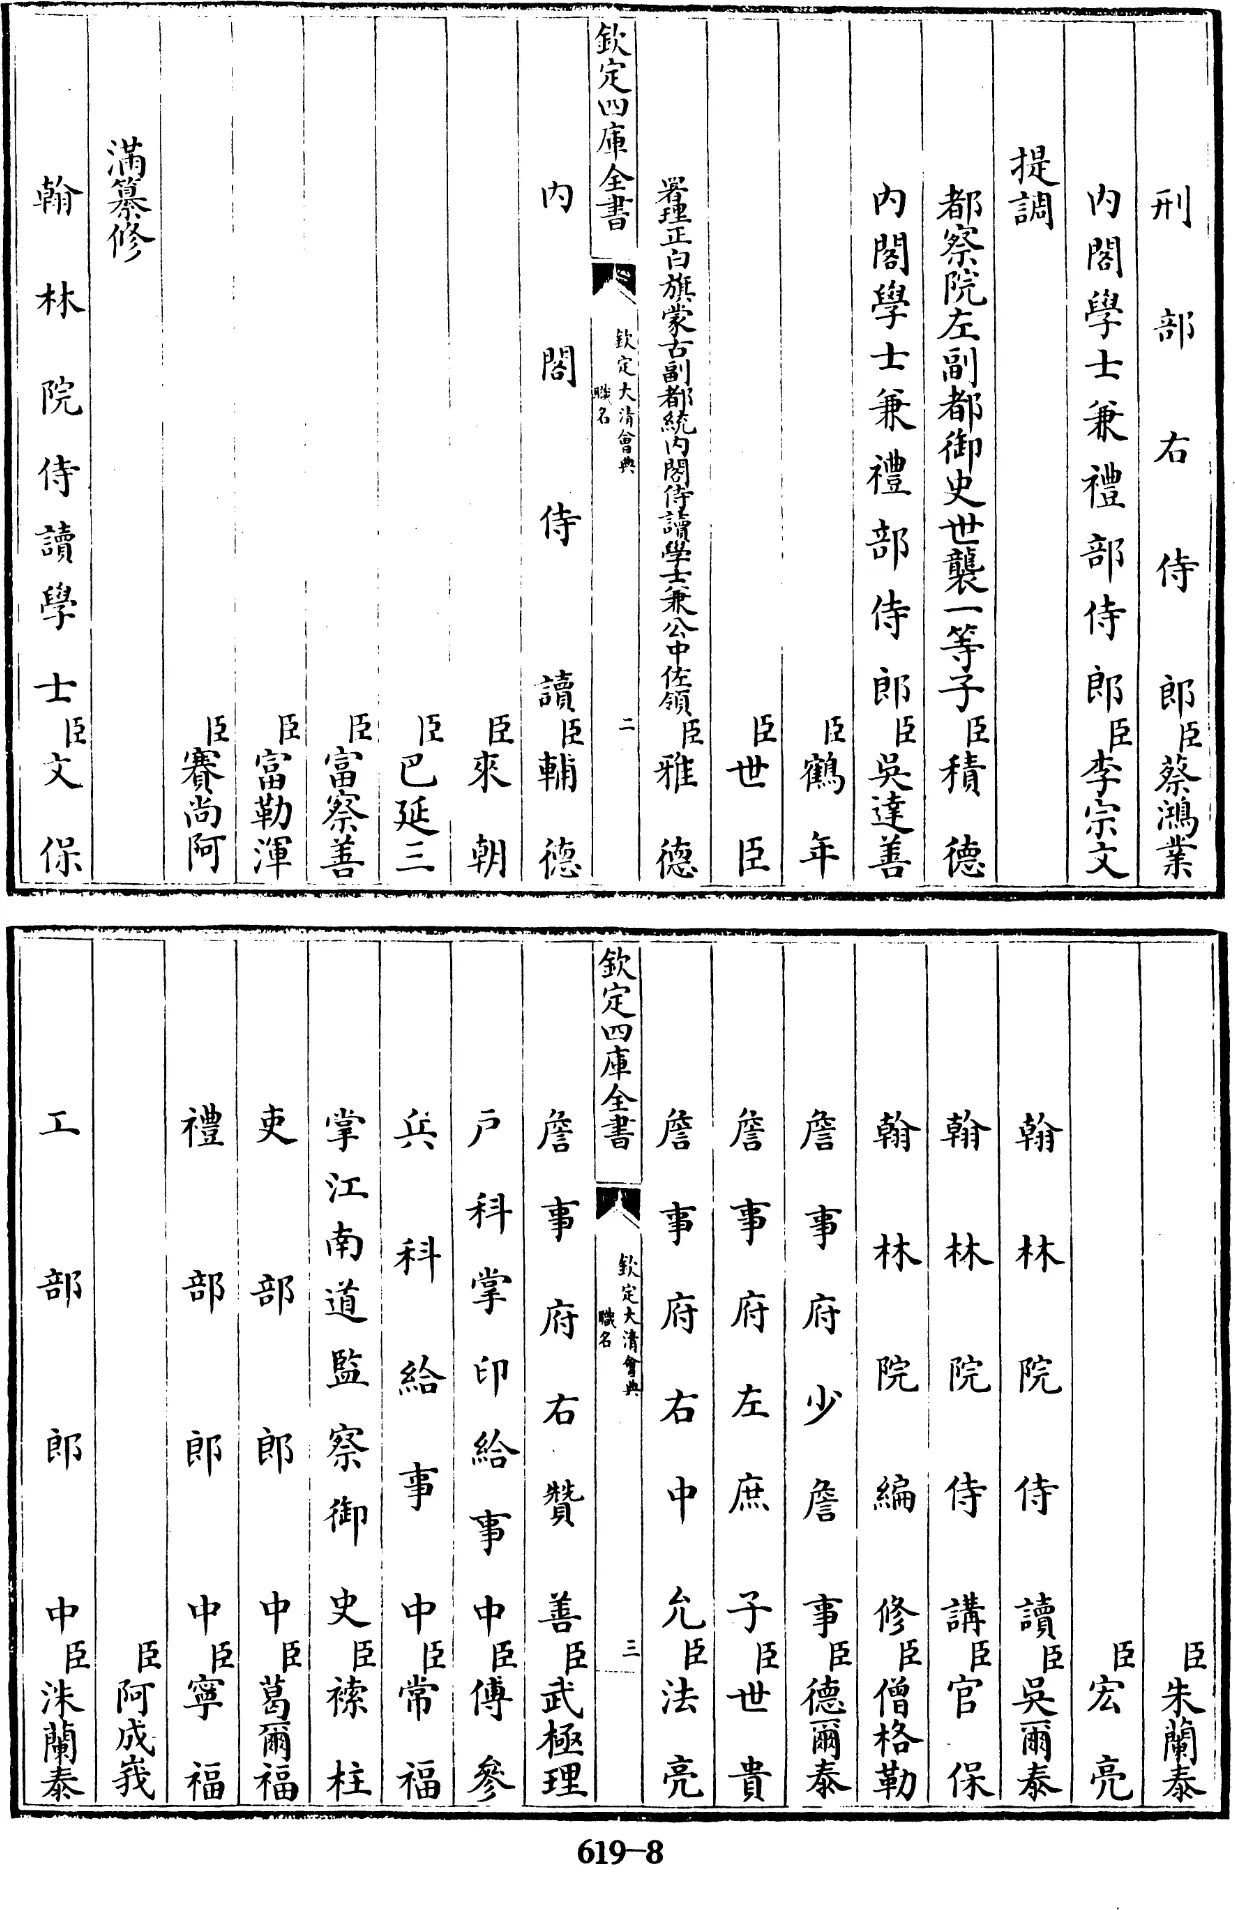 刑部右侍郎臣蔡鴻業
内閣學士兼禮部侍郎臣李宗文
提調
都察院左副都御史世襲一等子臣積德
内閣學士兼禮部侍郎臣吳達善
臣鶴年
臣世臣
署理正白旗蒙古副都統内閣侍讀學士兼公中佐領臣雅德
欽定四庫全書
欽定大清會典
職名
二
内閣侍讀臣輔德
臣來朝
臣巴延三
臣富察善
臣富勒渾
臣賽尚阿
滿纂修
翰林院侍讀學士臣文保
臣朱蘭泰
臣宏亮
翰林院侍讀臣吳爾泰
翰林院侍講臣官保
翰林院編修臣僧格勒
詹事府少詹事臣德爾泰
詹事府左庶子臣世貴
詹事府右中允臣法亮
欽定四庫全書
欽定大清會典
職名
三
詹事府右贊善臣武極理
户科掌印給事中臣傅參
兵科給事中臣常福
掌江南道監察御史臣襡柱
吏部郎中臣葛爾福
禮部郎中臣寧福
臣阿成峩
工部郎中臣洙蘭泰
619-8